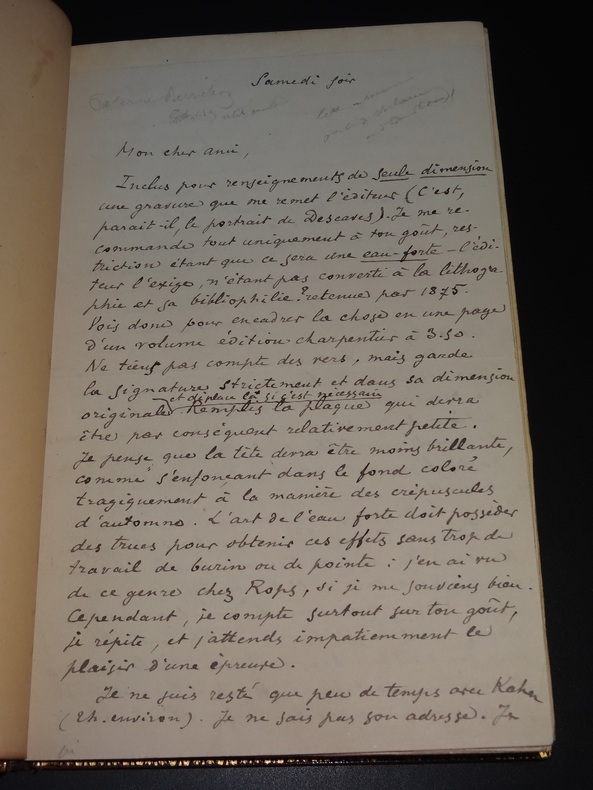 Samedi soir
Mon cher ami,
Inclus pour renseignements de seule dimension
une gravure que me remet l'éditeur (C'est,
parait-il, le portrait de Descaves). Je me re-
commande tout uniquement à ton goût, res-
triction étant que ce sera une eau-forte – l'édi-
teur l'exige, n'étant pas converti à la lithogra-
phie et sa bibliophilie? retenue par 1875.
Vois donc pour encadrer la chose en une page
d'un volume édition charpentier à 3.50.
Ne tiens pas compte des vers, mais garde
la signature strictement et dans sa dimension
et déplace là si c'est nécessaire
originale. Remplis la plaque qui devra
être par conséquent relativement petite.
Je pense que la tête devra être moins brillante,
comme s'enfonçant dans le fond coloré
tragiquement à la manière des crépuscules
d'automne. L'art de l'eau forte doit posséder
des trucs pour obtenir ces effets sans trop de
travail de burin ou de pointe : j'en ai vu
de ce genre chez Rops, si je me souviens bien.
Cependant, je compte surtout sur ton goût,
je répète, et j'attends impatiemment le
plaisir d'une épreuve.
Je ne suis resté que peu de temps avec Kahn
(1h. environ). Je ne sais pas son adresse. Je